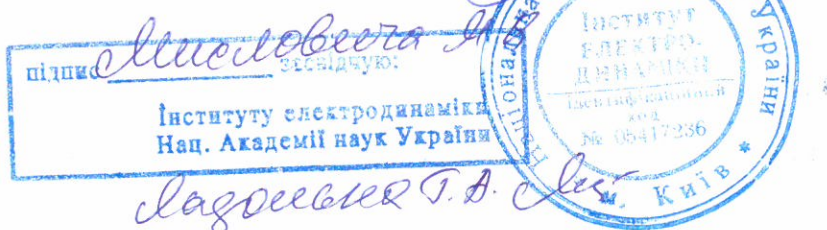 підпис Мисловича
засвідчую:
Інституту електродинаміки
Нац. Академії наук України
Т. В.
Національна
України
м. Київ *
Інститут
ЕЛЕКТРО-
ДИНАМІКИ
ідентифікаційний
код
№ 05417236